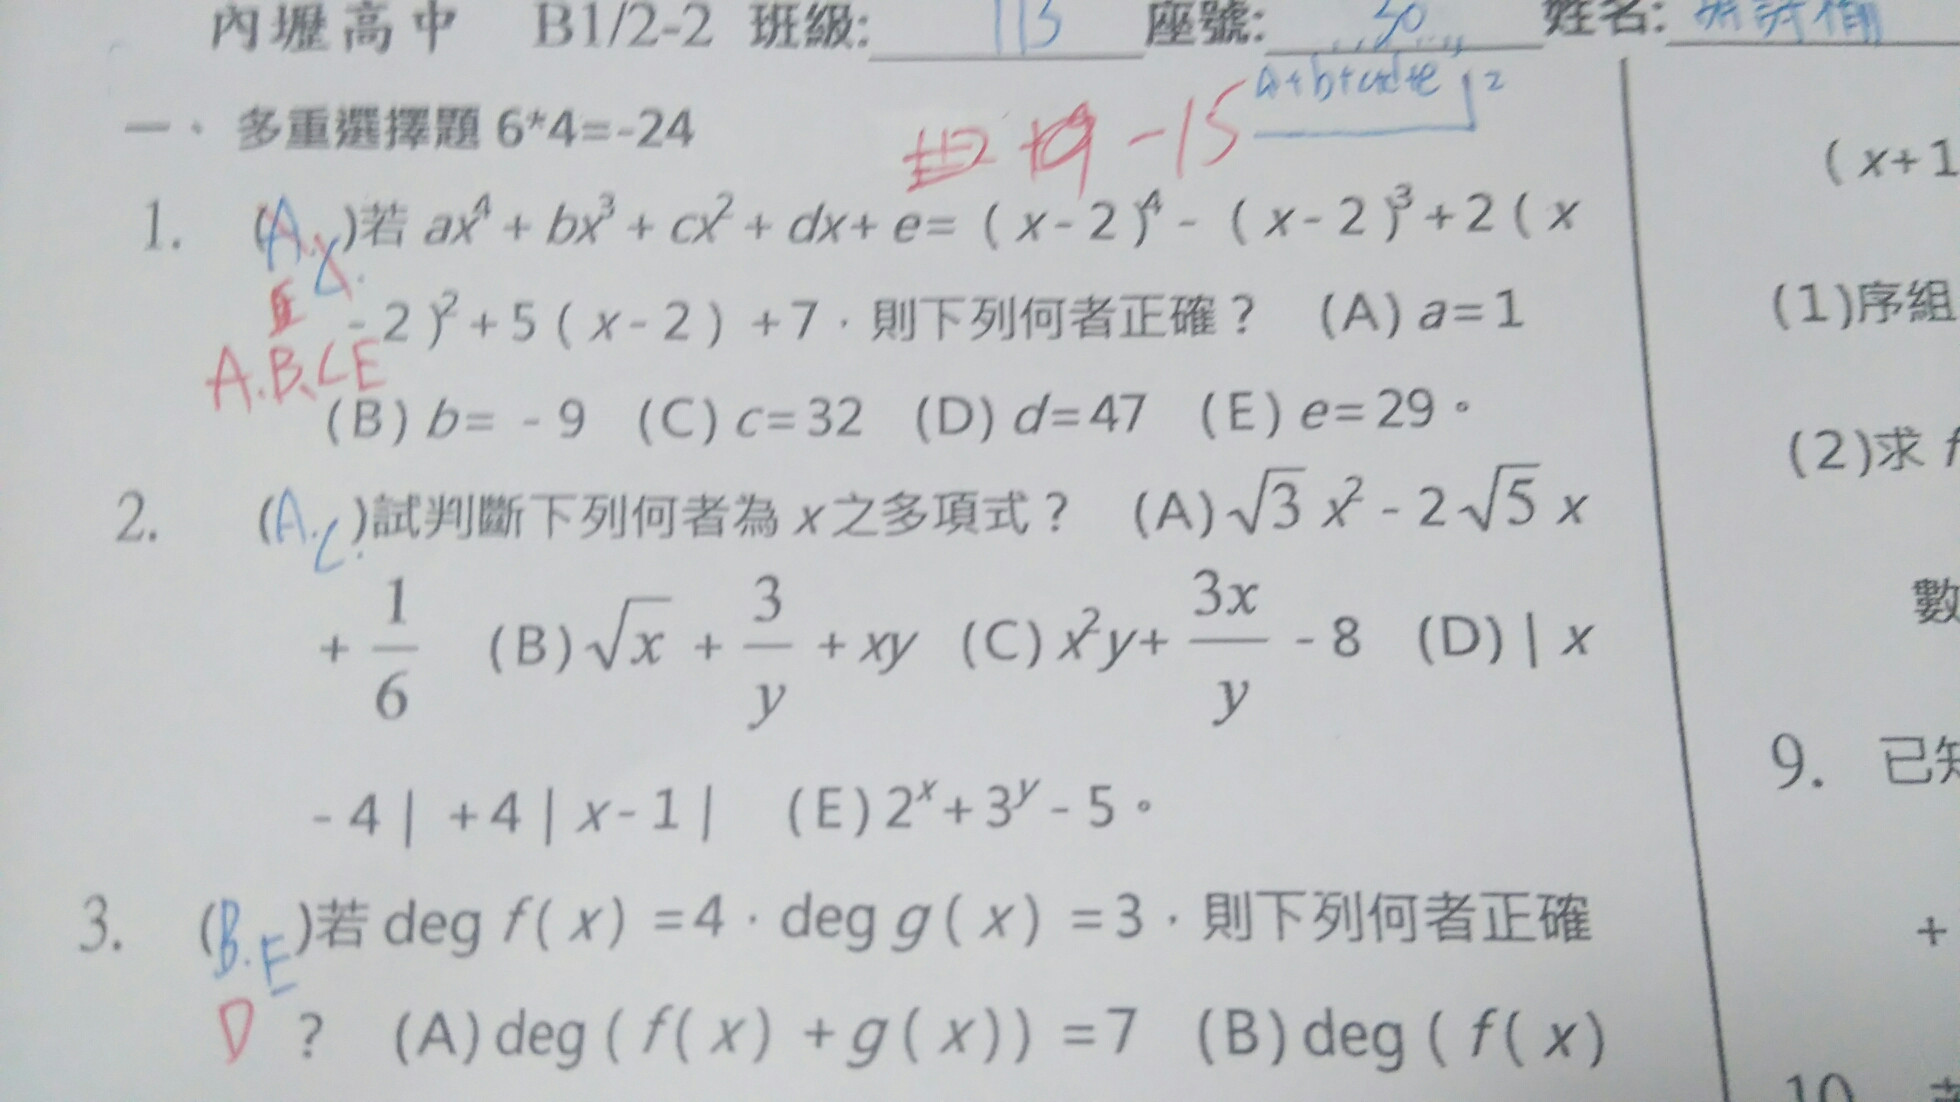 內壢高中 B1/2-2 班級: 113 座號: 30 姓名:
a+b+c+d+e
一、多重選擇題 6*4=-24
+9 -15
(x+1
1. (A. )若 ax⁴+bx³+cx²+dx+e=(x-2)⁴-(x-2)³+2(x
-2)²+5(x-2)+7,則下列何者正確? (A)a=1
A.B.C E
(B)b=-9 (C)c=32 (D)d=47 (E)e=29。
(1)序組
(2)求 f
2. (A.C.)試判斷下列何者為 x 之多項式? (A)√3 x²-2√5 x
+1/6 (B)√x+3/y+xy (C)x²y+3x/y-8 (D)|x
數
-4|+4|x-1| (E)2ˣ+3ʸ-5。
9. 已知
+
3. (B.E)若 deg f(x)=4,deg g(x)=3,則下列何者正確
D
? (A)deg(f(x)+g(x))=7 (B)deg(f(x)
10